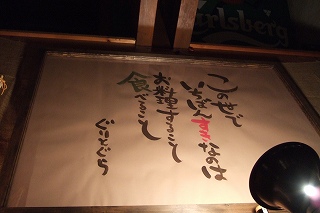 Carlsberg
このよで
いちばんすきなのは
お料理すること
食べること
ぐりとぐら